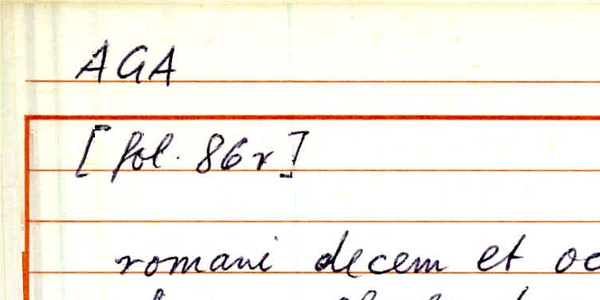 AGA
[fol. 86r]
romani decem et oc